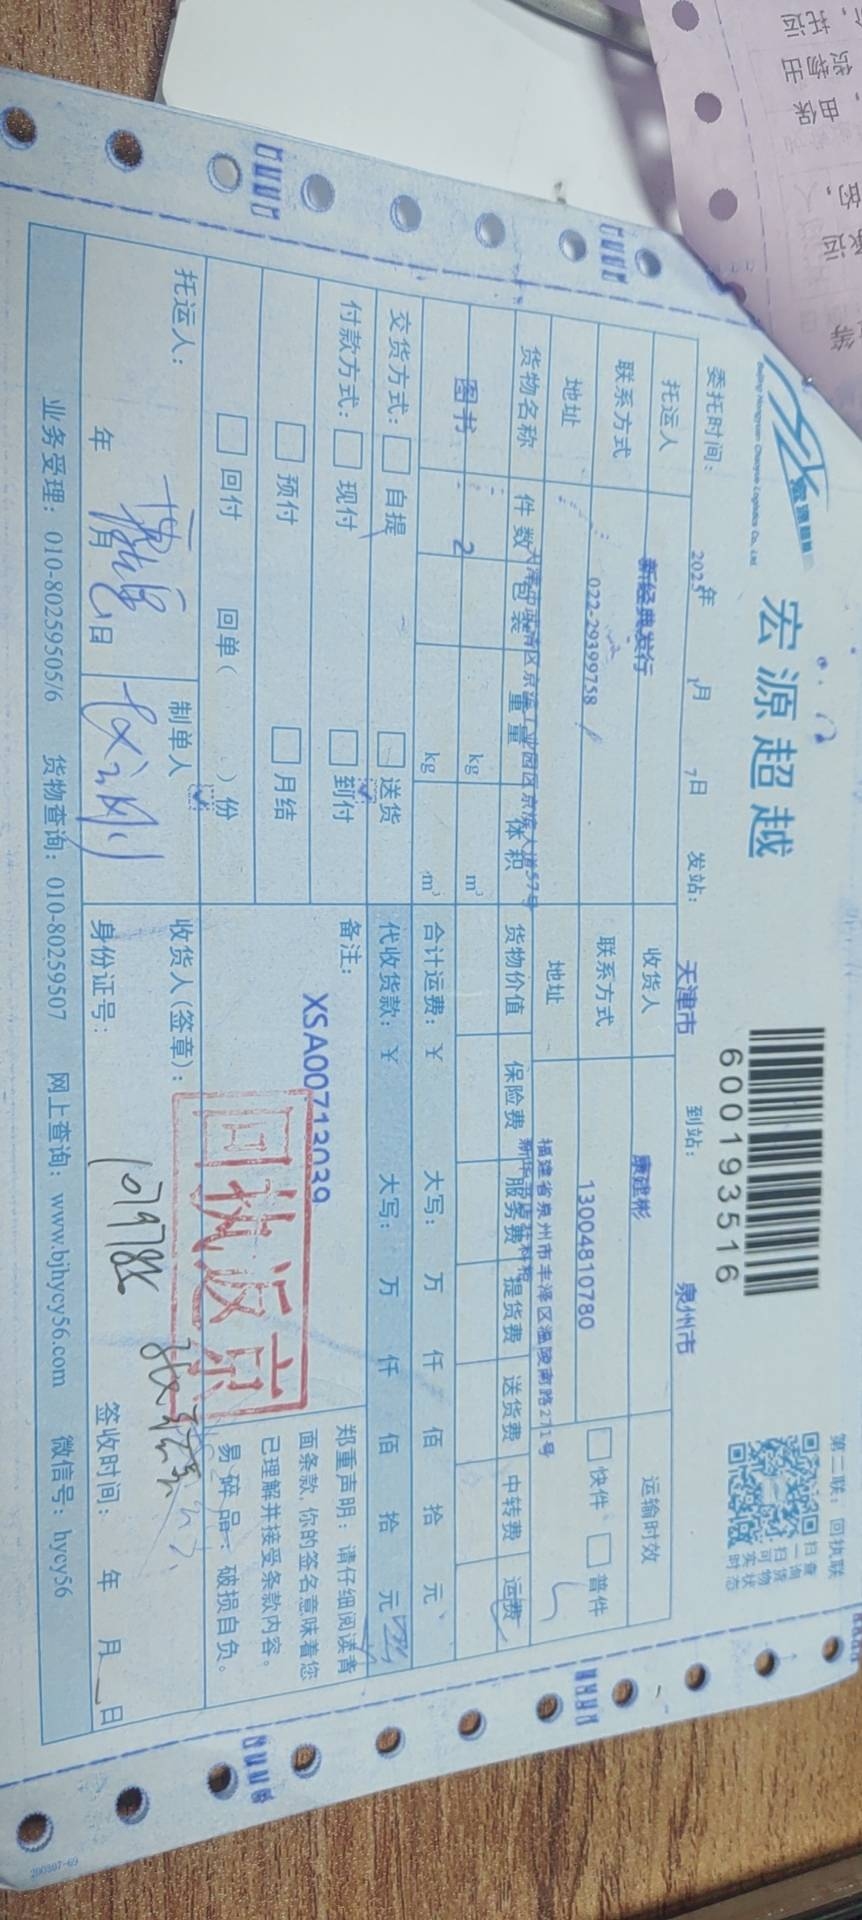 宏源超越
Beijing Hongyuan Chaoyue Logistics Co., Ltd
宏源超越
600193516
第二联：回执联
扫一扫可实时
查询货物状态
委托时间： 2025年 1月 7日 发站： 天津市 到站： 泉州市
托运人 新经典发行 收货人 康建彬 运输时效
联系方式 022-29399758 联系方式 13004810780 快件 普件
地址 地址 福建省泉州市丰泽区温陵南路271号
货物名称 件数 包装 重量 体积 货物价值 保险费 服务费 提货费 送货费 中转费 运费
图书 2 kg m³
kg m³ 合计运费：￥ 大写： 万 仟 佰 拾 元
交货方式： 自提 送货 代收货款：￥ 大写： 万 仟 佰 拾 元
付款方式： 现付 到付 备注：
预付 月结 XSA00713039
回付 回单（ ）份
回执返京
郑重声明：请仔细阅读背
面条款，你的签名意味着您
已理解并接受条款内容。
易碎品：破损自负。
托运人： 制单人 收货人（签章）：
年 月 日 身份证号： 签收时间： 年 月 日
业务受理：010-80259505/6 货物查询：010-80259507 网上查询：www.bjhycy56.com 微信号：hycy56